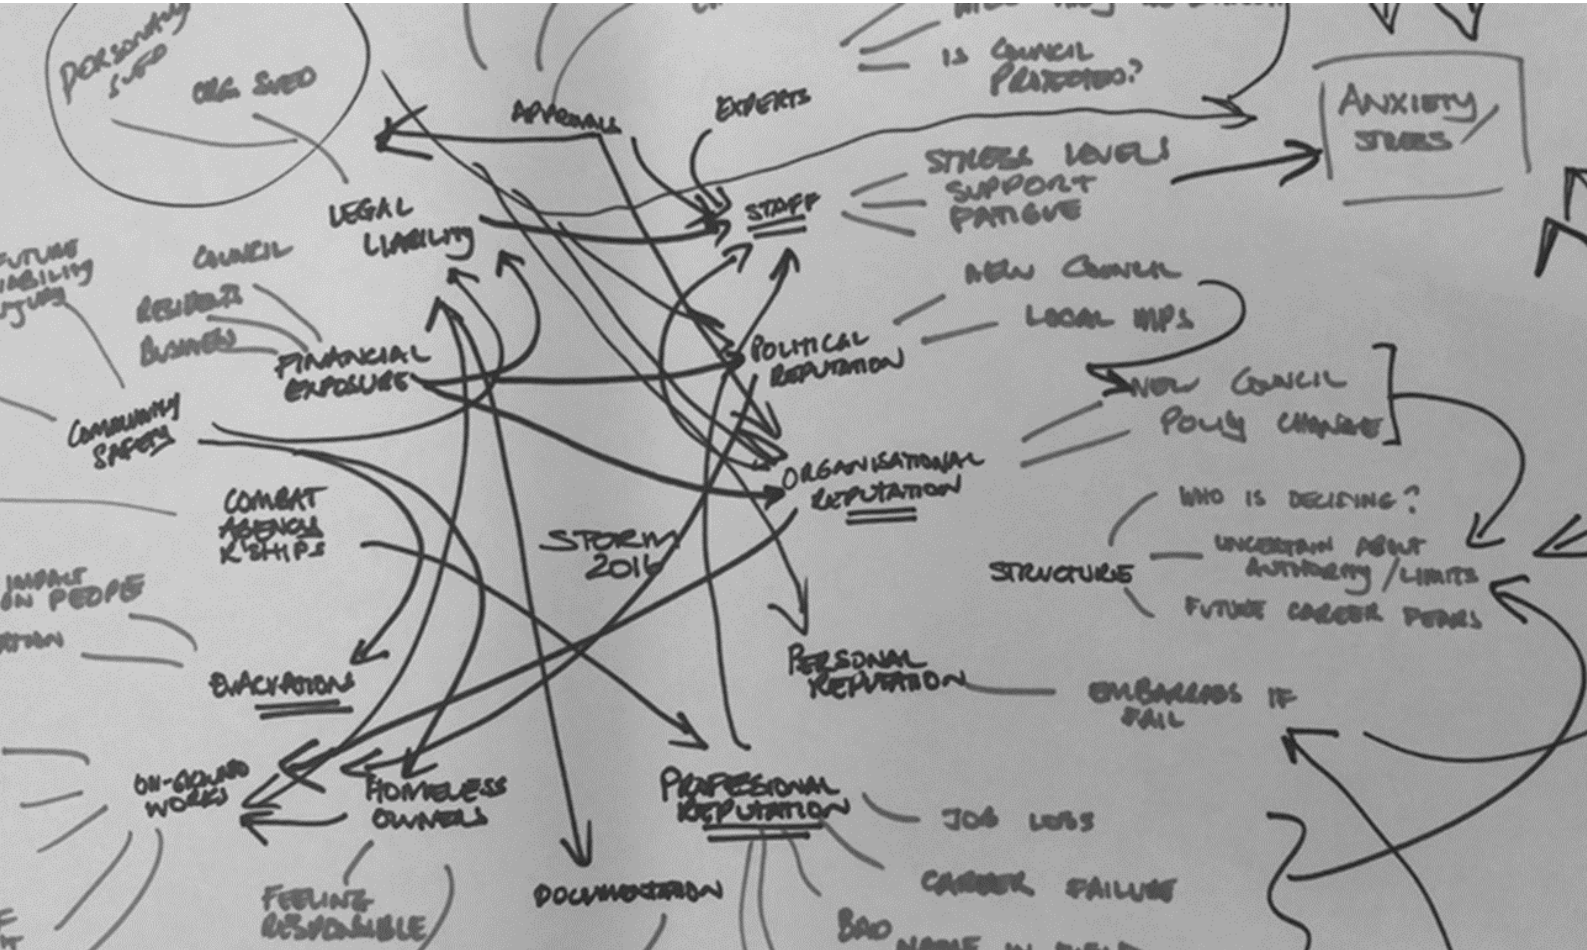 PERSONALLY
SUED
ORG. SUED
APPROVALS
EXPERTS
IS COUNCIL
PROTECTED?
ANXIETY
STRESS
STRESS LEVELS
SUPPORT
FATIGUE
STAFF
LEGAL
LIABILITY
FUTURE
COUNCIL
RESIDENTS
BUSINESS
FINANCIAL
EXPOSURE
NEW COUNCIL
LOCAL MPS
POLITICAL
REPUTATION
NEW COUNCIL
POLICY CHANGE
COMMUNITY
SAFETY
ORGANISATIONAL
REPUTATION
COMBAT
AGENCY
R'SHIPS
STORM
2016
WHO IS DECIDING?
STRUCTURE
UNCERTAIN ABOUT
AUTHORITY / LIMITS
FUTURE CAREER FEARS
IMPACT
ON PEOPLE
EVACUATIONS
PERSONAL
REPUTATION
EMBARRASS IF
FAIL
ON-GROUND
WORKS
HOMELESS
OWNERS
PROFESSIONAL
REPUTATION
JOB LOSS
CAREER FAILURE
DOCUMENTATION
FEELING
RESPONSIBLE
BAD
NAME IN